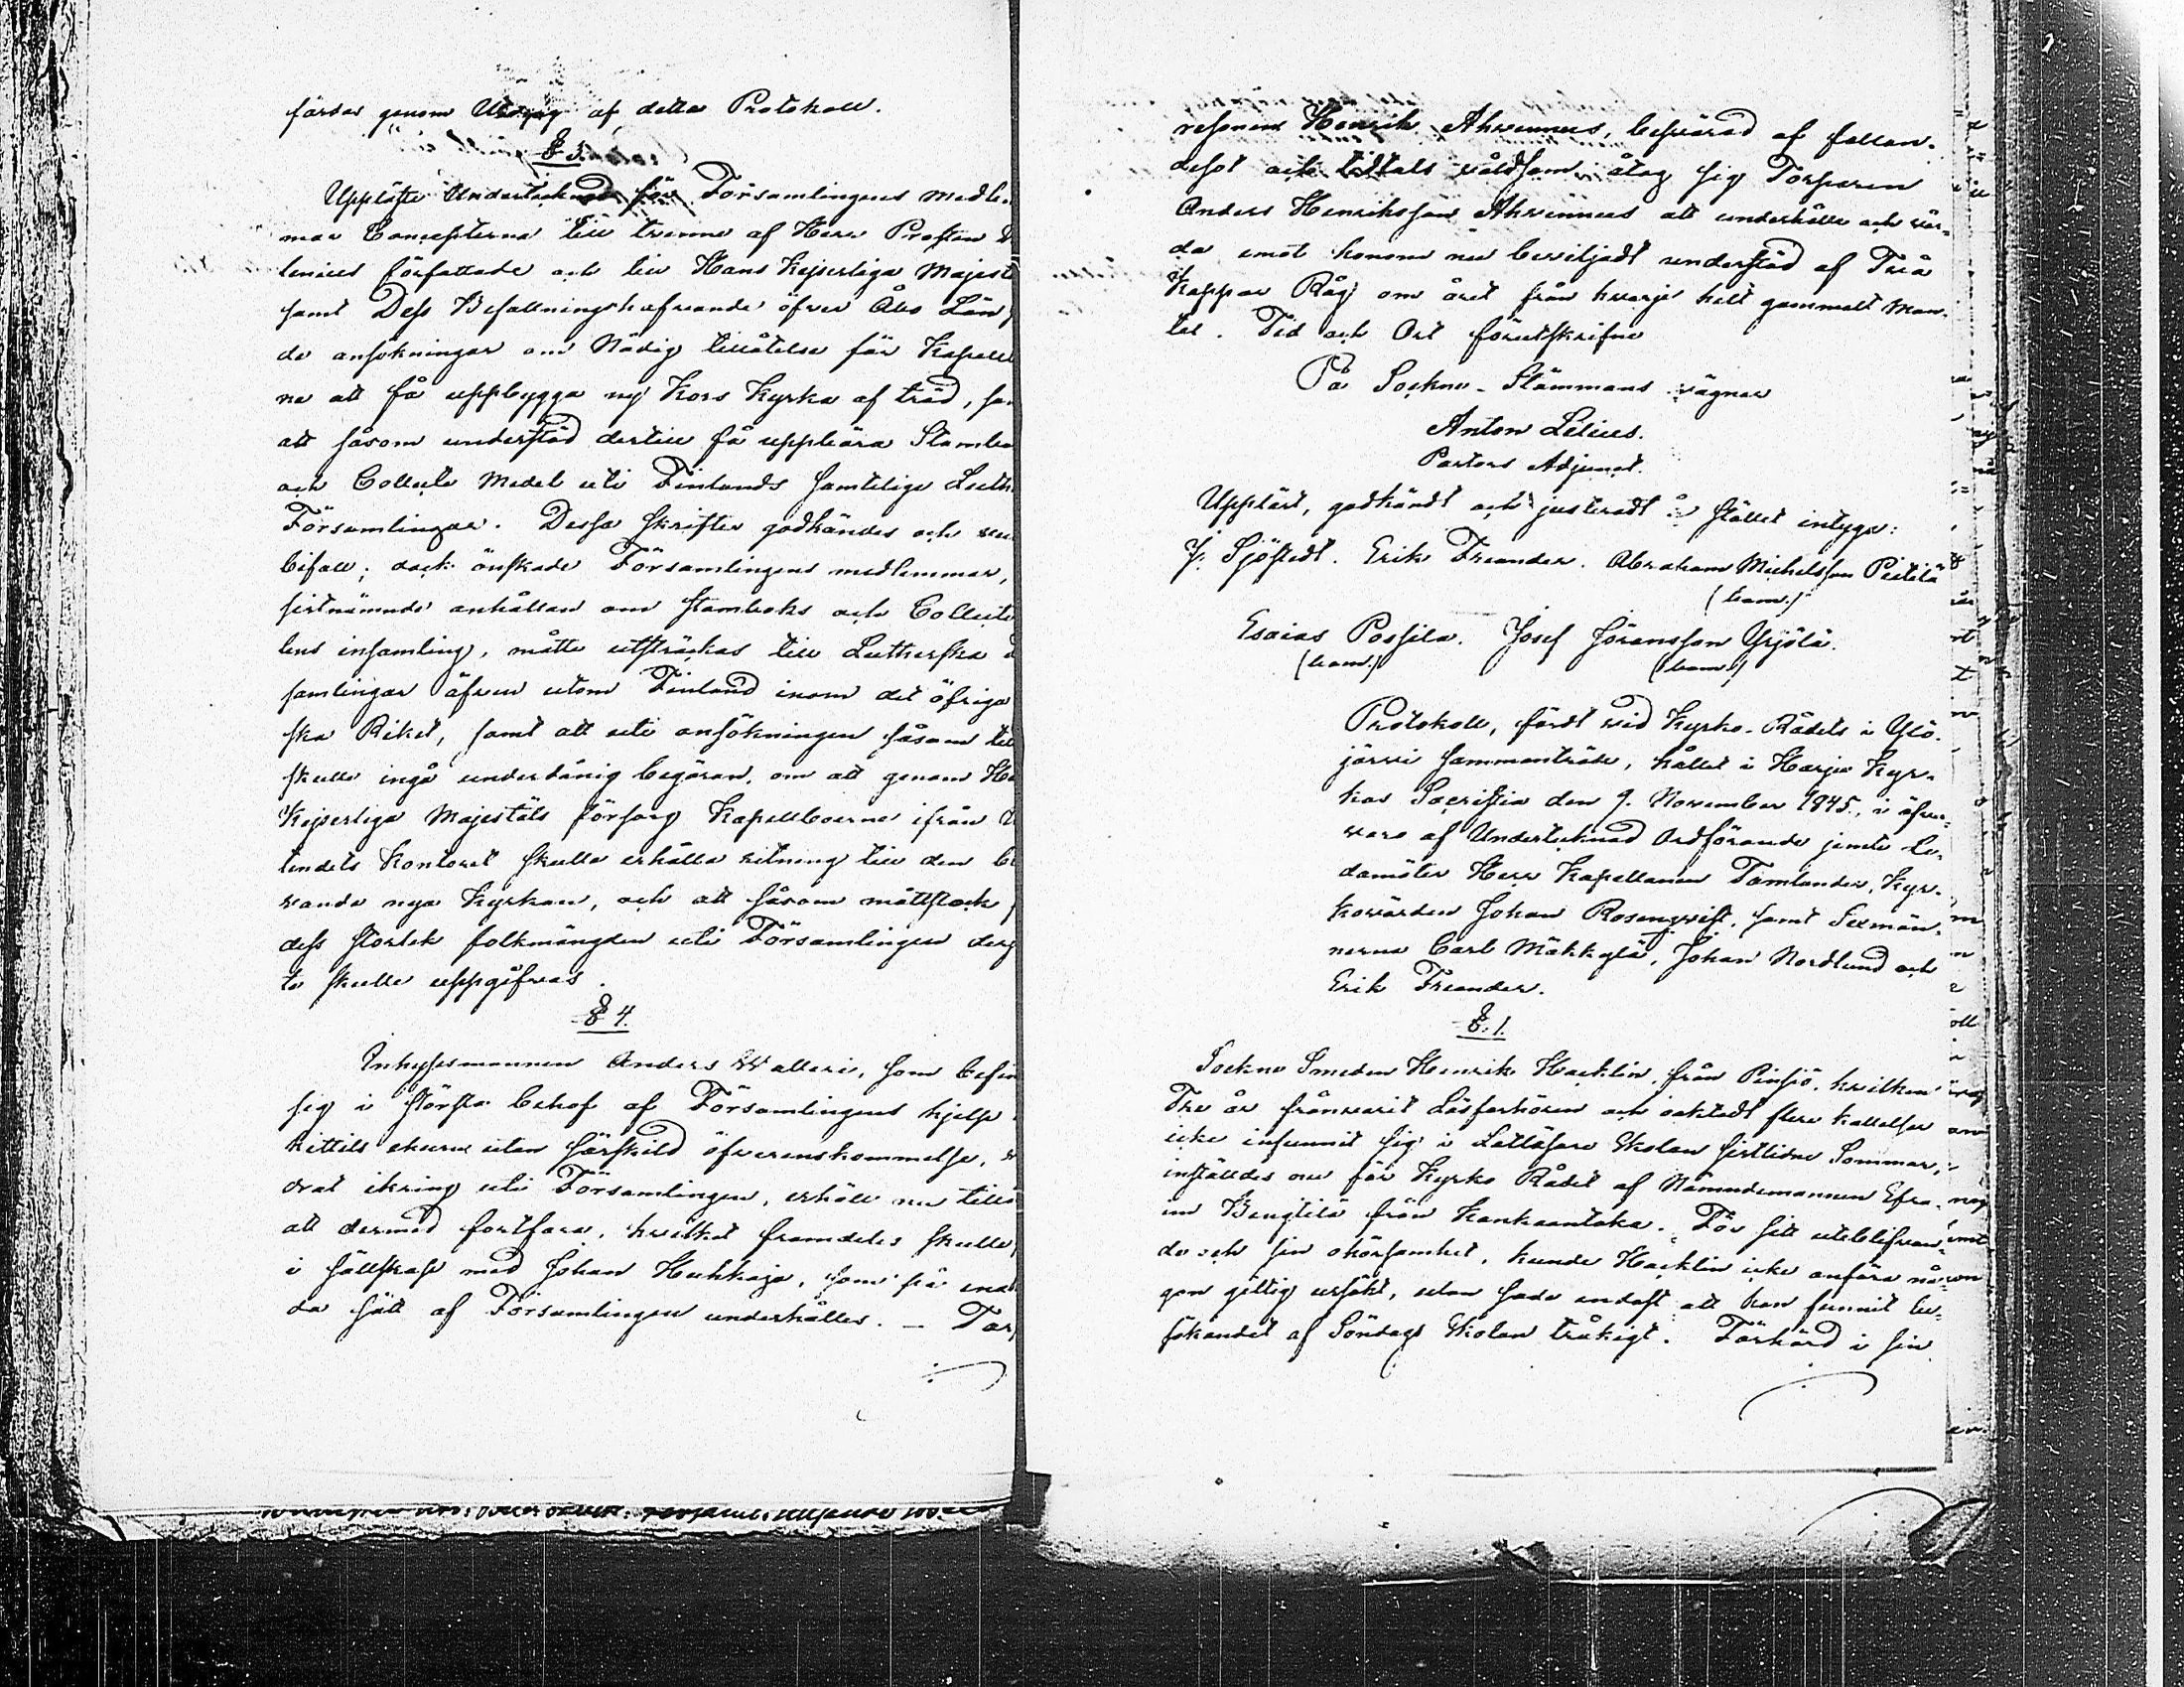 färdas genom Utdrag af detta Protokoll.
§ 3.
Uppläste Undertecknad för Församlingens medlem-
mar Concepterna till trenne af Herr Prosten
lenius författade och till Hans Kejserliga Majest
samt Dess Befallningshafvande öfver Åbo Län,
de ansökningar om Nådig tillåtelse för Kapell
ne att få uppbygga ny Kors Kyrka af träd, sa
att såsom understöd dertill få uppbära Stambo
och Collecte Medel uti Finlands samtelige Luth
Församlingar. Dessa skrifter godkändes och
bifall; dock önskade Församlingens medlemmar,
sistnämnde anhållan om stamboks och Collecte
lens insamling, måtte utsträckas till Lutherska
samlingar äfven utom Finland inom det öfriga
ska Riket, samt att uti ansökningen såsom till
skulle ingå underdånig begäran, om att genom Ha
Kejserliga Majestäts försorg Kapellboerne ifrån
tendets Kontoret skulle erhålla ritning till den be
vande nya Kyrkan, och att såsom måttstock
dess storlek folkmängden uti Församlingen derj
te skulle uppgifvas.
§ 4.
Inhysesmannen Anders Walleri, som befin
sig i största behof af Församlingens hjelp
hittils ekurn utan särskild öfverenskommelse,
drat ikring uti Församlingen, erhöll nu tillå
att dermed fortfara, hvilket framdeles skulle
i sällskap med Johan Huhkaja, som på ena
da sätt af Församlingen underhålles. — Tor
resonen Henrik Ahvennus, besvärad af fallan-
desot och tidtals våldsam åtog sig Torparen
Anders Henriksson Ahvennus att underhålla och vår-
da emot honom nu beviljadt understöd af Två
Kappar Råg om året från hvarje helt gammalt Man-
tal. Tid och Ort förutskrifne
På Sockne-Stämmans vägnar
Anton Lilius.
Pastors Adjunct.
Uppläst, godkändt och justeradt å stället intyga:
J. Sjöstedt. Erik Freander. Abraham Michelsson Pietilä
(bom.)
Esaias Possila. Josef Göransson Yrjölä.
(bom.) (bom.)
Protokoll, fördt vid Kyrko-Rådets i Ylö-
järvi sammanträde, hållet i Harju Kyr-
kas Sacristia den 9. November 1845, i öfver-
varo af Undertecknad Ordförande jemte le-
damöter Herr Kapellanen Tamlander, Kyr-
kovärden Johan Rosenqvist, samt Sexmän-
nerna Carl Mäkkylä, Johan Nordlund och
Erik Freander.
§. 1.
Sockne Smeden Henrik Hacklin från Pinsiö, hvilken
Tre år frånvarit Läsförhören och oaktadt flere kallelser
icke infunnit sig i Lättläsare Skolan sistlidne Sommar,
inställdes nu för Kyrko Rådet af Nämndemannen Efra-
im Bengtilä från Kankaantaka. För sitt uteblifvan-
de och sin ohörsamhet, kunde Hacklin icke anföra nå-
gon giltig ursäkt, utan sade endast att han funnit be-
sökandet af Söndags Skolan tråkigt. Förhörd i sin